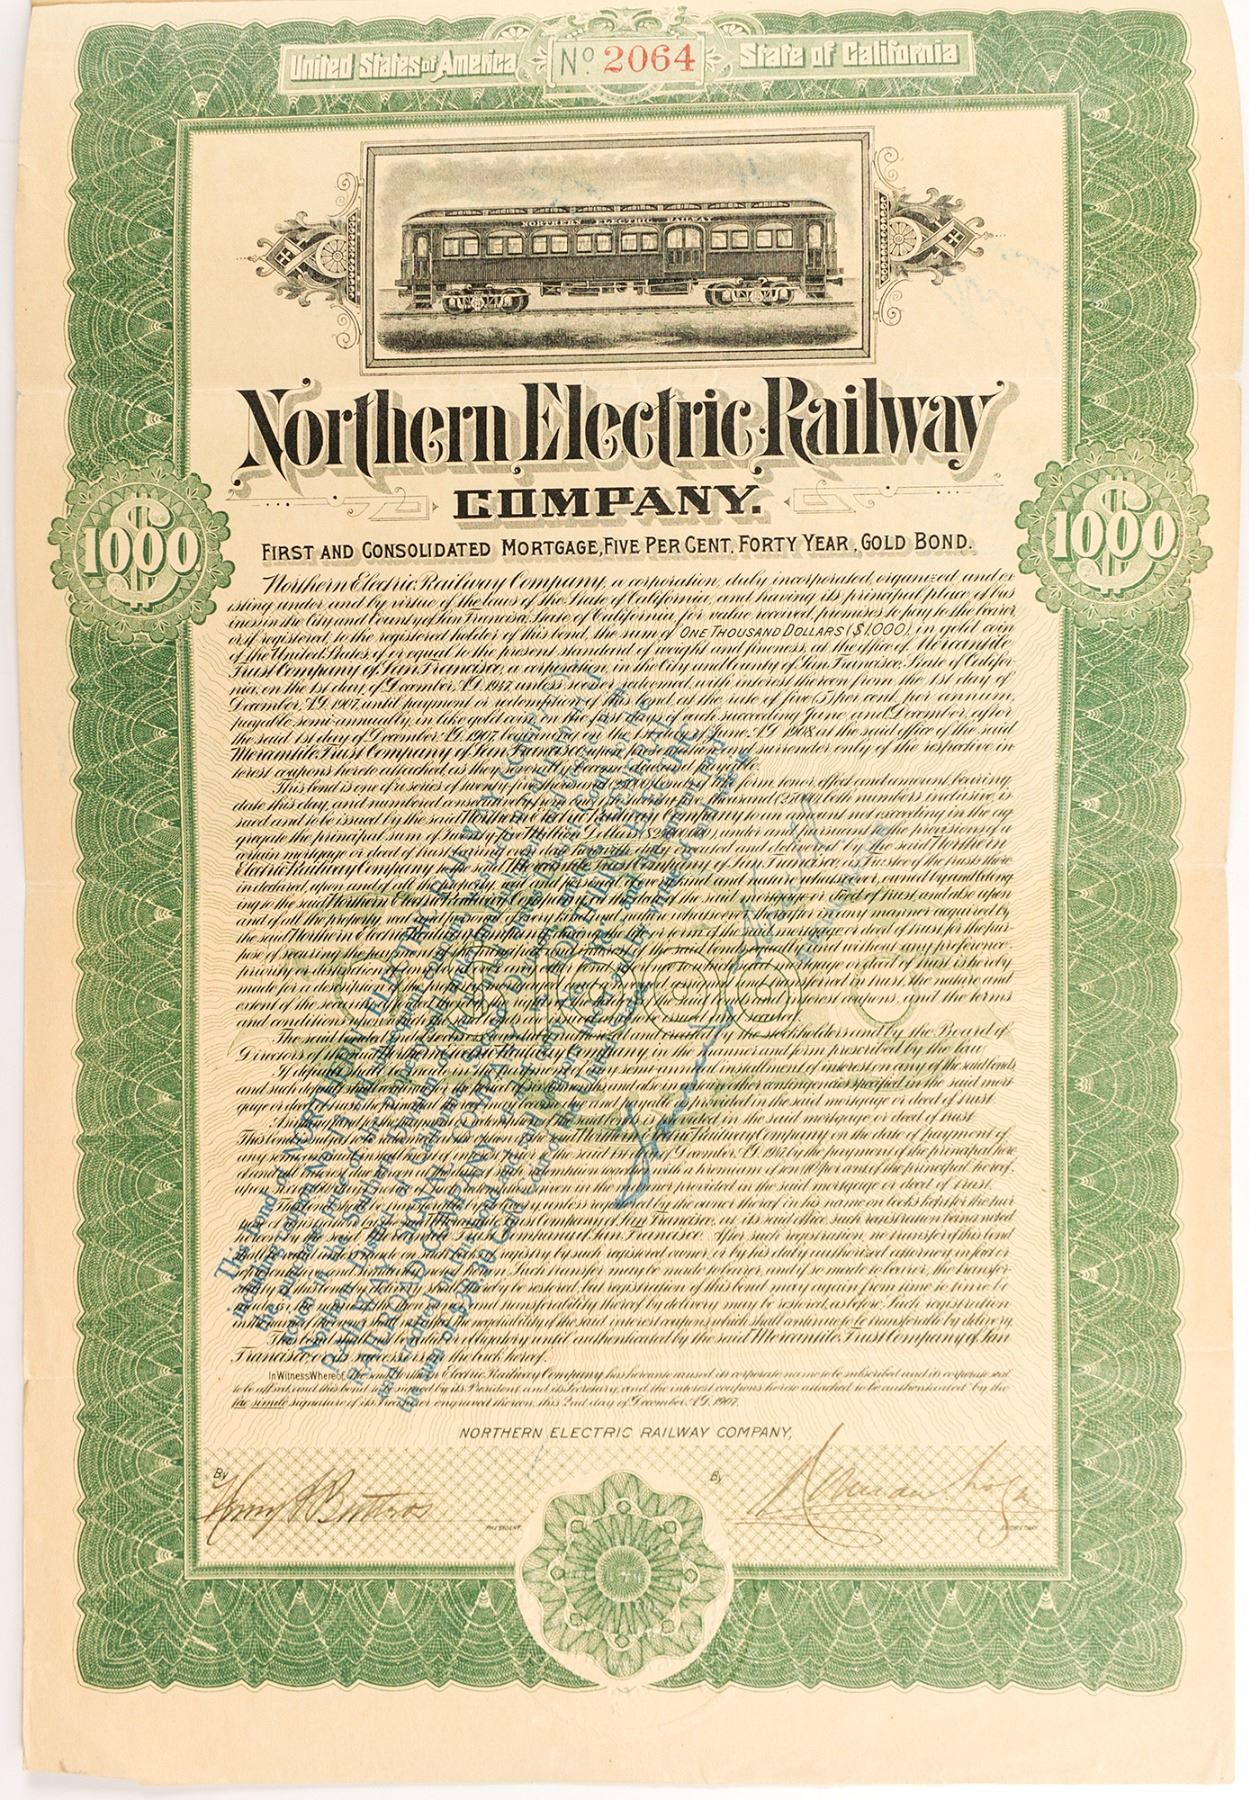 United States of America
No. 2064
State of California
NORTHERN ELECTRIC RAILWAY
Northern Electric Railway
COMPANY.
$1000
$1000
FIRST AND CONSOLIDATED MORTGAGE, FIVE PER CENT. FORTY YEAR, GOLD BOND.
Northern Electric Railway Company, a corporation, duly incorporated, organized, and ex
isting under and by virtue of the laws of the State of California, and having its principal place of bus
iness in the City and County of San Francisco, State of California, for value received, promises to pay to the bearer,
or if registered, to the registered holder of this bond, the sum of ONE THOUSAND DOLLARS ($1,000), in gold coin
of the United States, of or equal to the present standard of weight and fineness, at the office of Mercantile
Trust Company of San Francisco, a corporation, in the City and County of San Francisco, State of Califor
nia, on the 1st day of December, A.D. 1947, unless sooner redeemed, with interest thereon from the 1st day of
December, A.D. 1907, until payment or redemption of this bond, at the rate of five (5) per cent. per annum,
payable semi-annually, in like gold coin, on the first days of each succeeding June and December, after
the said 1st day of December, A.D. 1907, beginning on the 1st day of June, A.D. 1908, at the said office of the said
Mercantile Trust Company of San Francisco, upon presentation and surrender only of the respective in
terest coupons hereto attached, as they severally become due and payable.
This bond is one of a series of twenty-five thousand (25,000) bonds of like form, tenor, effect and amount, bearing
date this day, and numbered consecutively from one (1) to twenty-five thousand (25,000), both numbers inclusive, is
sued and to be issued by the said Northern Electric Railway Company to an amount not exceeding in the ag
gregate the principal sum of Twenty-five Million Dollars ($25,000,000), under and pursuant to the provisions of a
certain mortgage or deed of trust bearing even date herewith, duly executed and delivered by the said Northern
Electric Railway Company to the said Mercantile Trust Company of San Francisco, as Trustee of the trusts there
in declared, upon and of all the property, real and personal, of every kind and nature whatsoever, owned by and belong
ing to the said Northern Electric Railway Company at the date of the said mortgage or deed of trust, and also upon
and of all the property, real and personal, of every kind and nature whatsoever, thereafter in any manner acquired by
the said Northern Electric Railway Company during the life or term of the said mortgage or deed of trust, for the pur
pose of securing the payment of the principal and interest of the said bonds equally and without any preference,
priority or distinction of any bond over any other bond, reference to which said mortgage or deed of trust is hereby
made for a description of the property mortgaged, conveyed, assigned and transferred in trust, the nature and
extent of the security afforded thereby, the rights of the holders of the said bonds and interest coupons, and the terms
and conditions upon which the said bonds are issued and to be issued and secured.
The said bonded indebtedness was duly authorized and created by the stockholders and by the Board of
Directors of the said Northern Electric Railway Company in the manner and form prescribed by the law.
If default shall be made in the payment of any semi-annual installment of interest on any of the said bonds
and such default shall continue for the period of six months, and also in certain other contingencies specified in the said mort
gage or deed of trust, the principal hereof may become due and payable as provided in the said mortgage or deed of trust.
A sinking fund for the payment and redemption of the said bonds is provided in the said mortgage or deed of trust.
This bond is subject to redemption at the option of the said Northern Electric Railway Company on the date of payment of
any semi-annual installment of interest prior to the said 1st day of December, A.D. 1947, by the payment of the principal here
of and all interest due hereon at the date of such redemption, together with a premium of ten (10) per cent. of the principal hereof,
upon notice of such redemption given in the manner provided in the said mortgage or deed of trust.
This bond shall be transferable by delivery, unless registered by the owner thereof in his name on books kept for the pur
pose of registration by the said Mercantile Trust Company of San Francisco, at its said office, such registration being noted
hereon by the said Mercantile Trust Company of San Francisco. After such registration, no transfer of this bond
shall be valid unless made on such books of registry by such registered owner, or by his duly authorized attorney in fact or
representative and similarly noted hereon. Such transfer may be made to bearer, and if so made to bearer, the transfer
ability of this bond by delivery shall thereby be restored, but registration of this bond may again from time to time be
made in the name of the owner, and transferability thereof by delivery may be restored, as before. Such registration
in the name of the owner shall not affect the negotiability of the said interest coupons, which shall continue to be transferable by delivery.
This bond shall not be valid or obligatory until authenticated by the said Mercantile Trust Company of San
Francisco, or its successors, on the back hereof.
In Witness Whereof, The said Northern Electric Railway Company has hereunto caused its corporate name to be subscribed and its corporate seal
to be affixed, and this bond to be signed by its President and its Secretary, and the interest coupons hereto attached to be authenticated by the
fac simile signature of its Treasurer engraved thereon, this 2nd day of December, A.D. 1907.
NORTHERN ELECTRIC RAILWAY COMPANY,
By
PRESIDENT.
By
SECRETARY.
This bond of NORTHERN ELECTRIC RAILWAY COMPANY
RAILROAD COMPANY
the sum of $38.30 Gold Coin of the United States